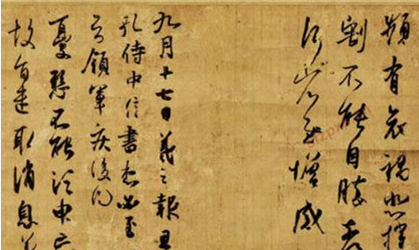 頻有哀禍悲摧
割不能自勝奈
省慰增感
九月十七日羲之報且
孔侍中信書想必至
知領軍疾後問
憂懸不能須臾忘
故旨遣取消息羲